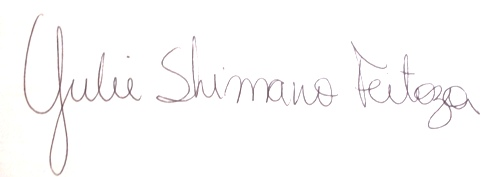 Yulie Shimano Feitoza